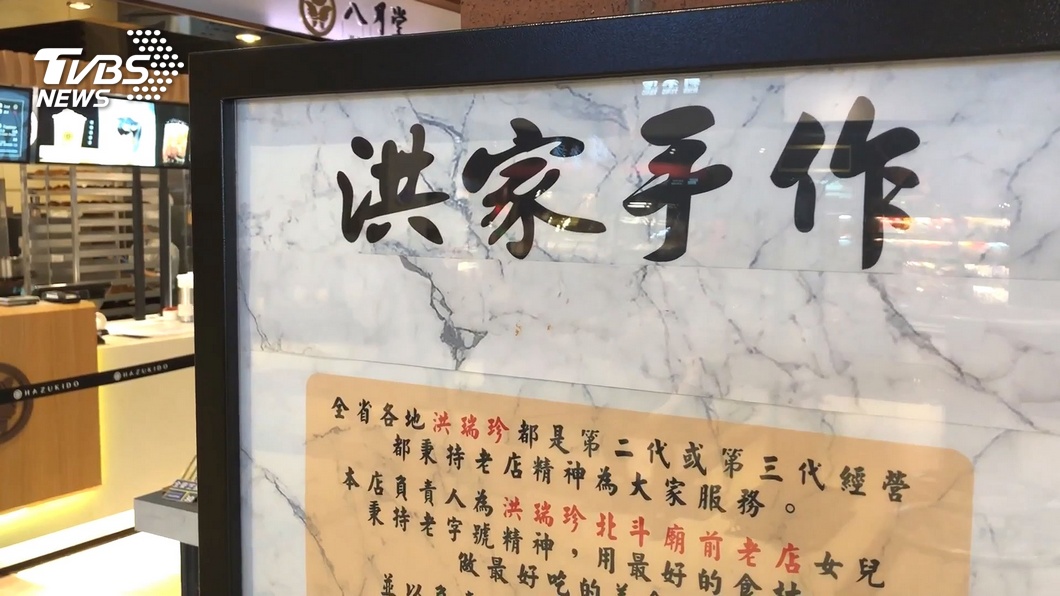 TVBS
NEWS
八月堂
洪家手作
全省各地洪瑞珍都是第二代或第三代經營
都秉持老店精神為大家服務。
本店負責人為洪瑞珍北斗廟前老店女兒
秉持老字號精神，用最好的食材
做最好吃的美食
並以
HAZUKIDO
HAZUKIDO